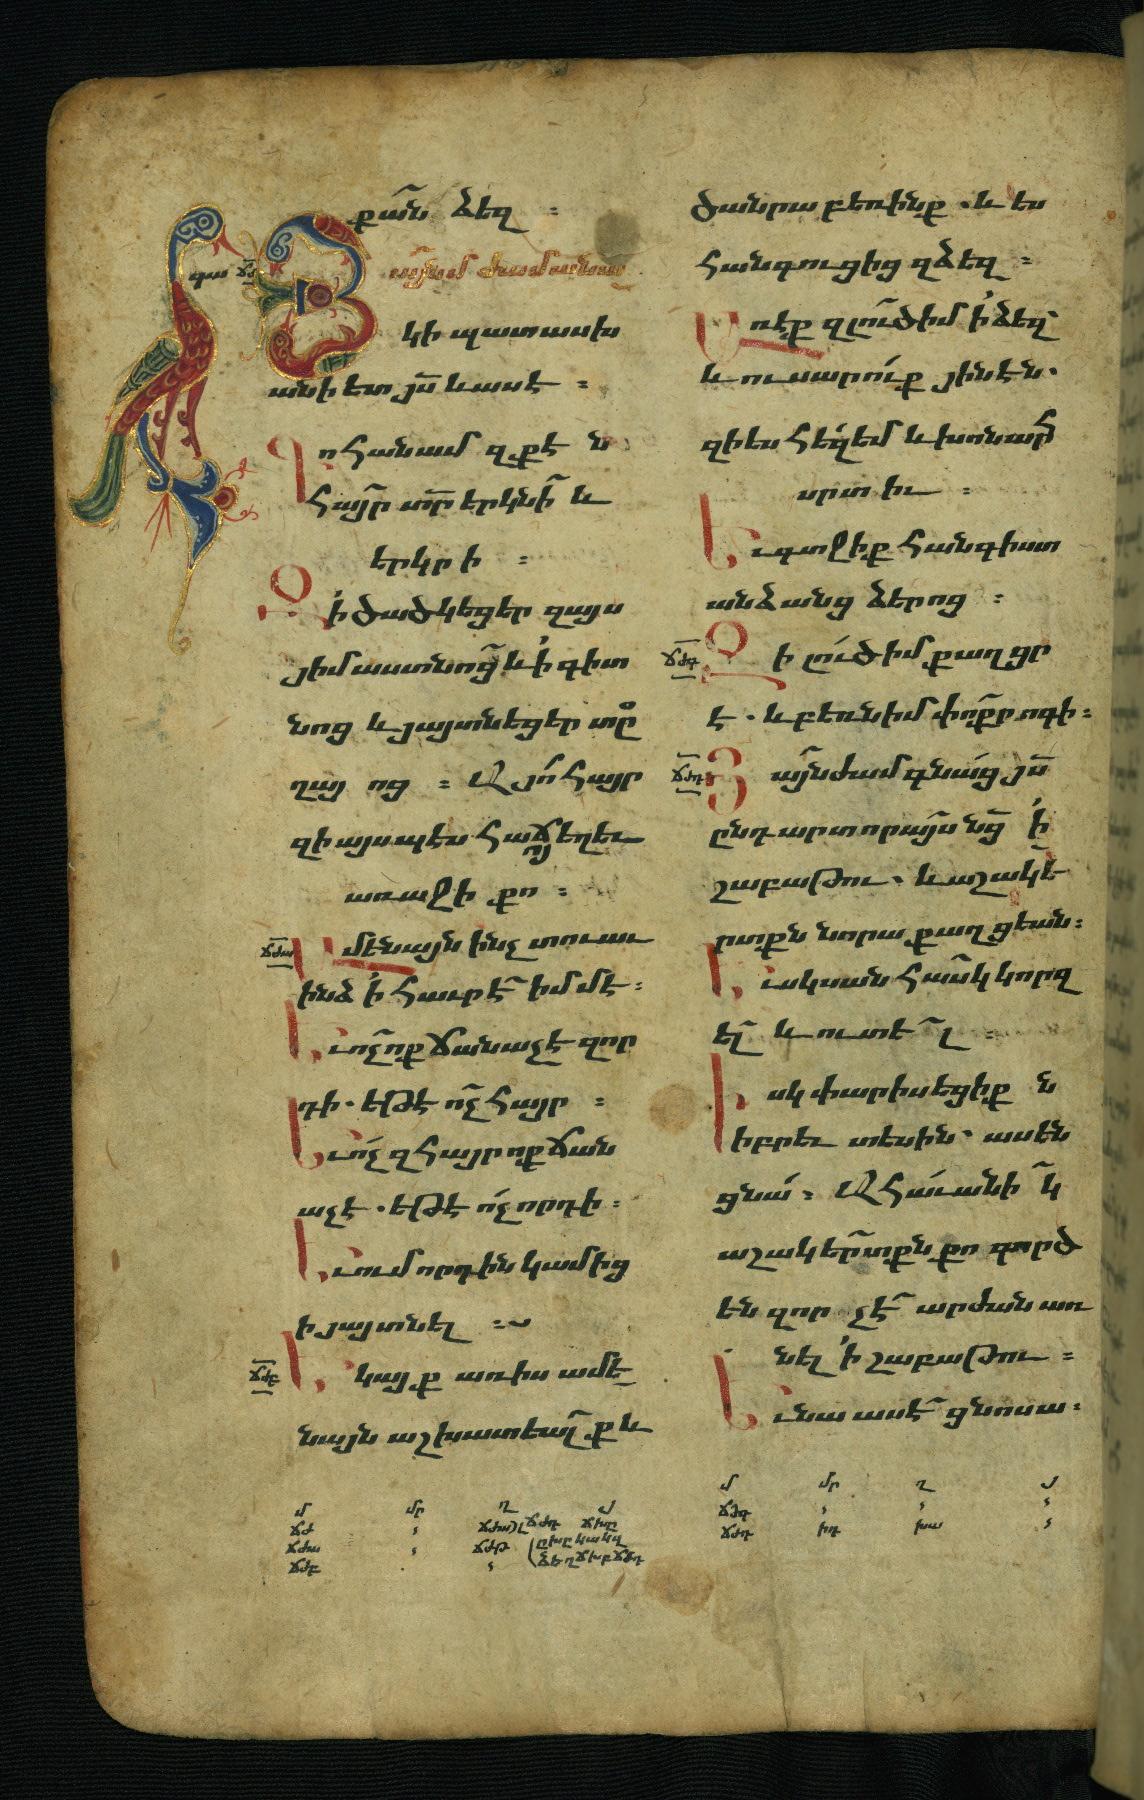 քան ձեզ ։
այնմ ժամանա
կի պատասխ
անի ետ յս և ասէ ։
ոհանամ զքէ ն
հայր տր երկնի և
երկրի ։
Զի ծածկեցեր զայս
յիմաստնոց և ի գիտ
նոց և յայտնեցեր տը
ղայոց ։ Այո հայր
զի այսպէս հաճոյ եղեւ
առաջի քո ։
ճժա Ամենայն ինչ տուաւ
ինձ ի հաւրէ իմմէ ։
Եւ ոչ ոք ճանաչէ զոր
դի . եթէ ոչ հայր ։
Եւ ոչ զհայր ոք ճան
աչէ . եթէ ոչ որդի ։
Եւ ում որդին կամիցի
յայտնել ։
ճժբ Եկայք առ իս ամե
նայն աշխատեալք և
ծանրաբեռինք . և ես
հանգուցից զձեզ ։
Առէք զլուծ իմ ի ձեզ
և ուսարուք յինէն .
զի ես հեզ եմ և խոնարհ
սրտիւ ։
Եւ գտջիք հանգիստ
անձանց ձերոց ։
ճժգ Զի լուծ իմ քաղցր
է . և բեռն իմ փոքրոգի ։
ճժդ Յայնժամ գնաց յս
ընդ արտորայս նց ի
շաբաթու . և աշակե
րտքն նորա քաղցեան ։
Եւ սկսան հասկ կորզ
ել և ուտել ։
Իսկ փարիսեցիքն
իբրեւ տեսին . ասեն
ցնա ։ Ահաւանիկ
աշակերտքն քո գործ
են զոր չէ արժան առ
նել ի շաբաթու ։
Եւ նա ասէ ցնոսա ։
մ մր ղ յ
ճժ
ճժա
ճժբ
մ մր ղ յ
ճժգ
ճժդ իդ խա